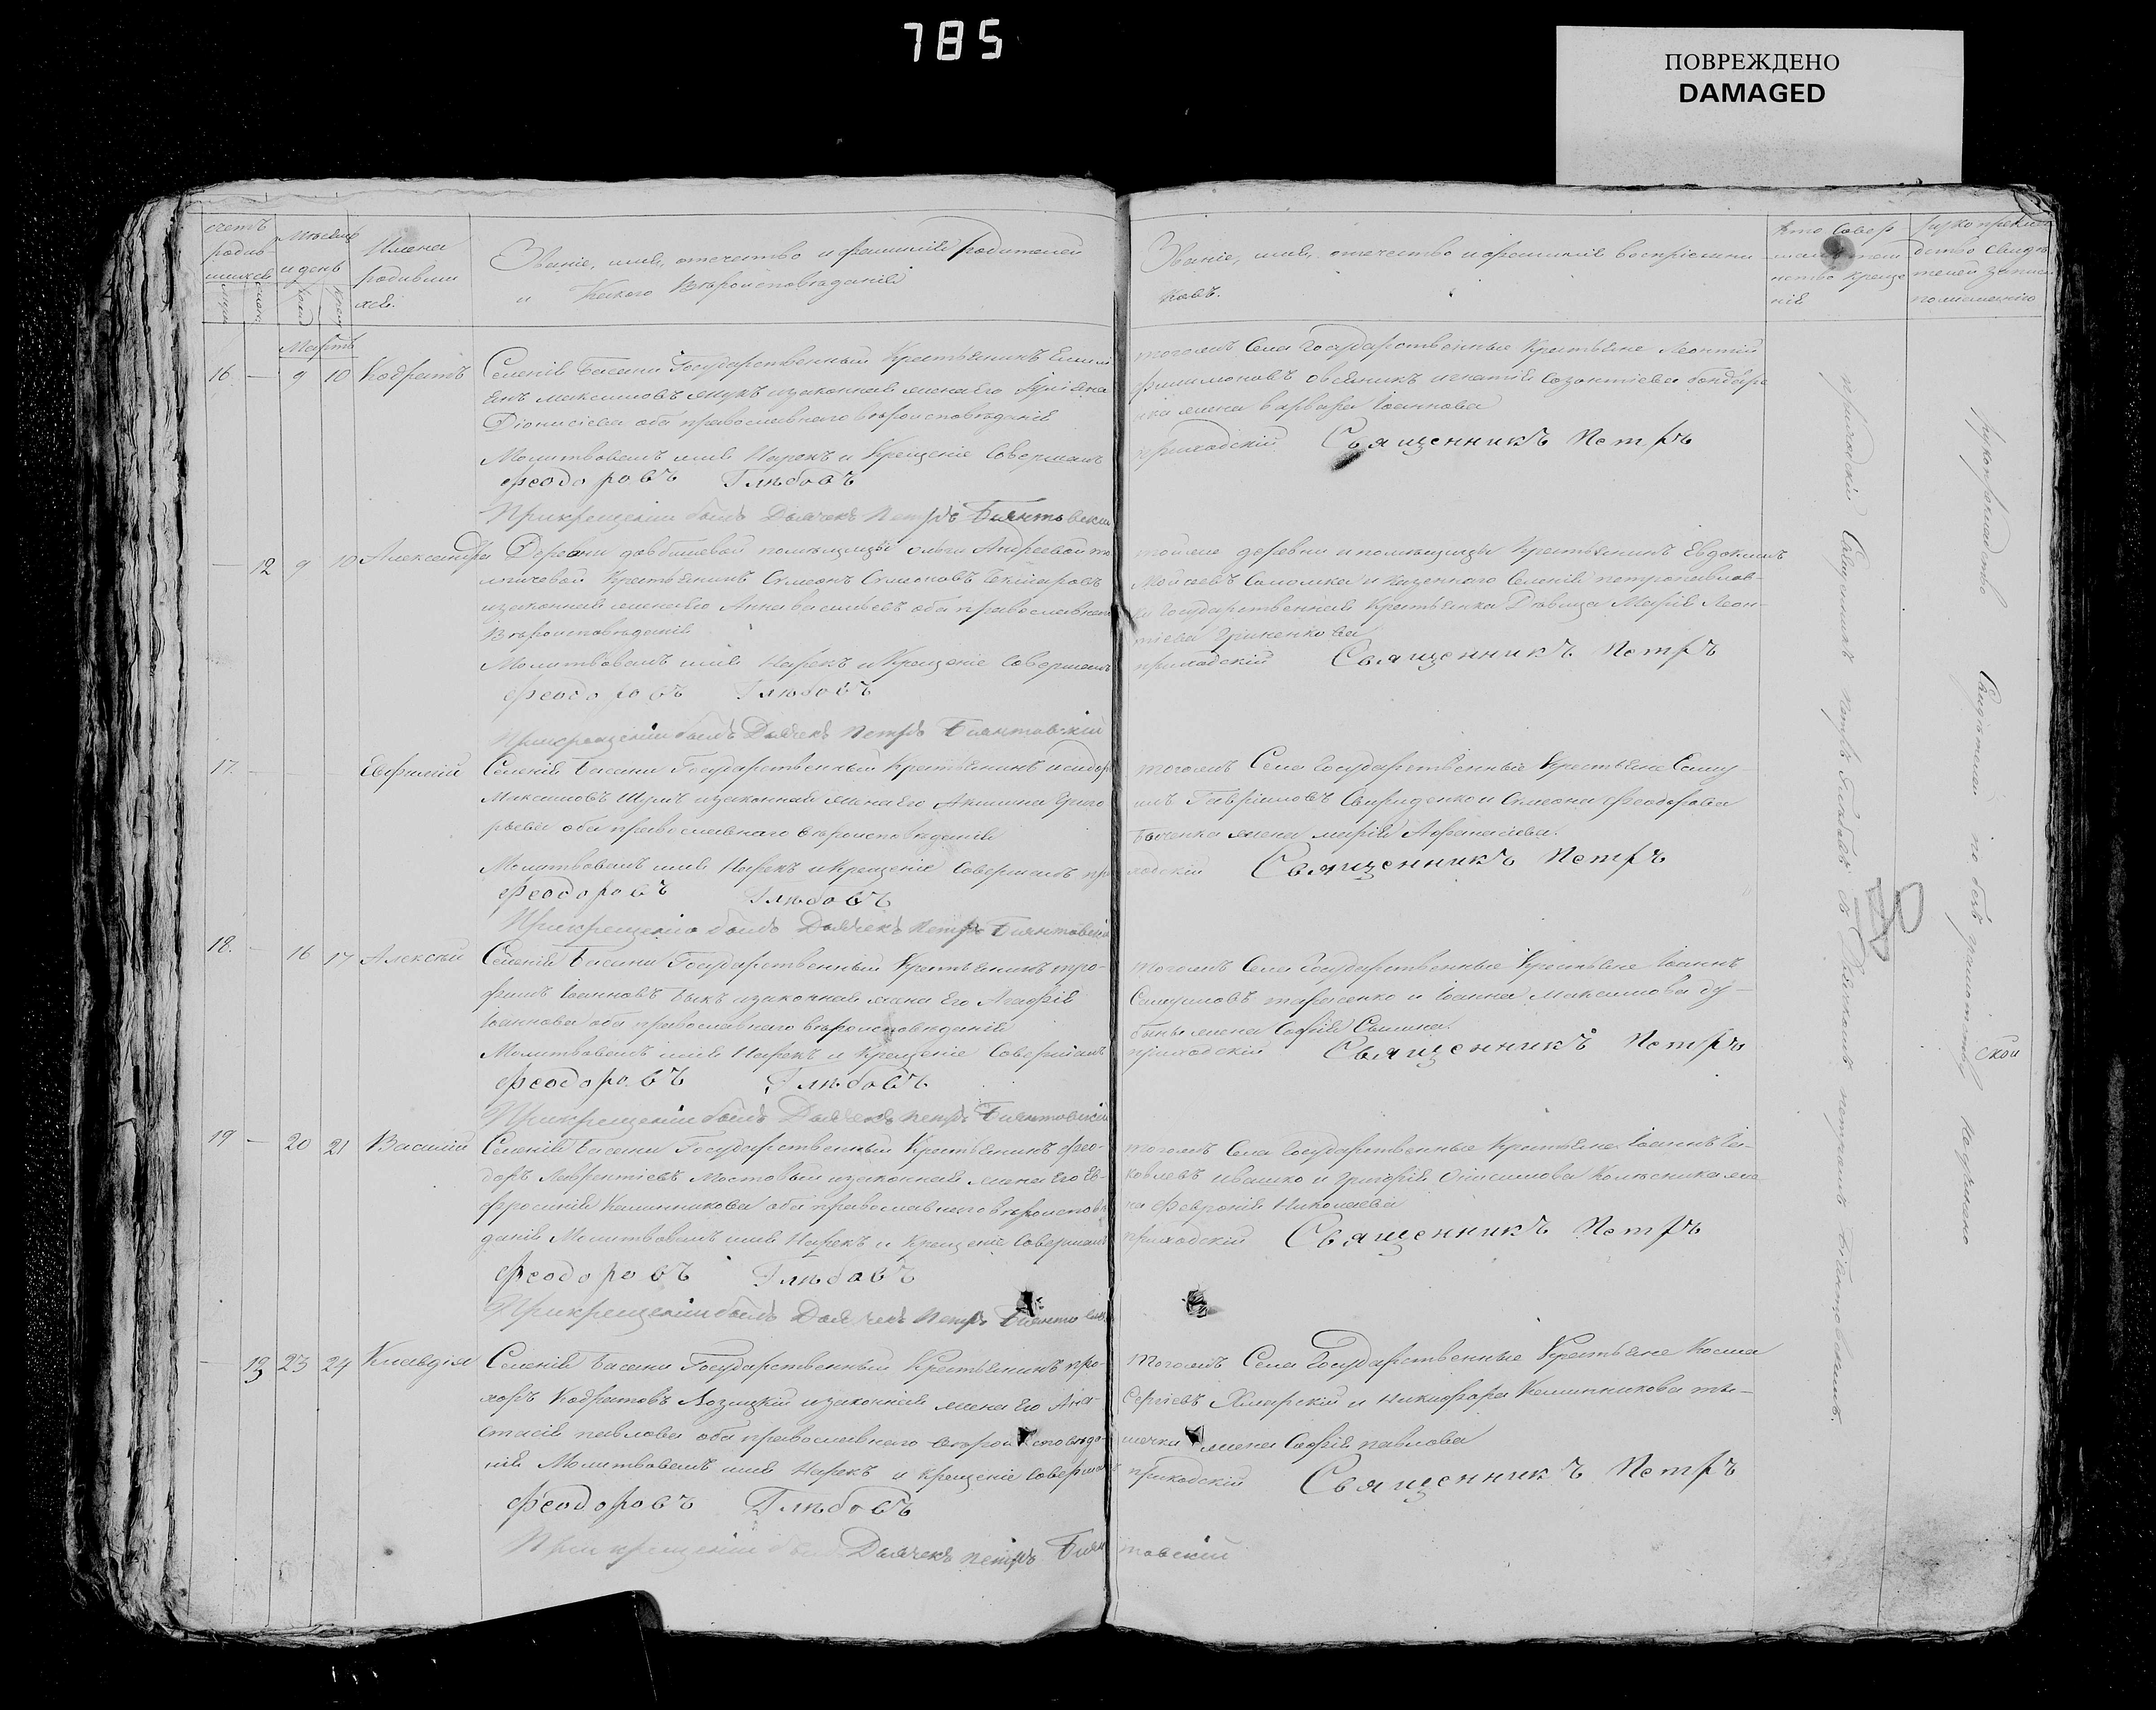 785
ПОВРЕЖДЕНО
DAMAGED
счетъ родив шихся
Мѣсяцъ и день
Имена родивших ся.
Званіе, имя, отечество и фамилія родителей
и Какого Вѣроисповѣданія
Званіе, имя, отечество и фамилія воспріемни
ковъ.
Кто совер
нство креще
нія
рукоприклад
ство свидѣ
телей записи
Мартъ
16. — 9 10 Кодратъ
Селенія Басани Государственный Крестьянинъ Емили
анъ Максимовъ изаконная жена его Іуліана
Діонисіева оба православнаго вѣроисповѣданія
Молитвовалъ имя Нарекъ и Крещеніе Совершалъ
Феодоровъ Глѣбовъ
При крещеніи былъ Дьячекъ Петръ Биянтовскій
тогожъ Села Государственные Крестьяне Леонтій
Филимоновъ Овсяникъ игнатія Созонтіева бондаре
нка жена варвара Іоаннова
приходскій Священникъ Петръ
— 12 9 10 Александра
Деревни помѣщицы ольги Андреевой
Крестьянинъ Симеонъ Симоновъ
изаконная жена его Анна васильевъ оба православнаго
Вѣроисповѣданія
Молитвовалъ имя Нарекъ и Крещеніе Совершалъ
Феодоровъ Глѣбовъ
При крещеніи былъ Дьячекъ Петръ Биянтовскій
тойже деревни и помѣщицы Крестьянинъ Евдокимъ
Мойсеевъ Соломка и Казеннаго Селенія петропавлов-
ки Государственная Крестьянка Дѣвица Марія Леон-
тіева Гриненкова
приходскій Священникъ Петръ
17. — Евфимій
Селенія Басани Государственный Крестьянинъ исидор
Максимовъ Шумъ изаконная жена Его Акилина Григо
рьева оба православнаго вѣроисповѣданія
Молитвовалъ имя Нарекъ и Крещеніе Совершалъ при
Феодоровъ Глѣбовъ
При крещеніи былъ Дьячекъ Петръ Биянтовскій
тогожъ Села Государственные Крестьяне Саму
илъ Гавріиловъ Свириденко и Симеона Феодорова
жена марія Афанасіева.
ходскій Священникъ Петръ
18. — 16 17 Алексѣй
Селенія Басани Государственный Крестьянинъ тро-
фимъ Іоанновъ Быкъ изаконная жена Его Агафія
Іоаннова оба православнаго вѣроисповѣданія
Молитвовалъ имя Нарекъ и Крещеніе Совершалъ
Феодоровъ Глѣбовъ
При крещеніи былъ Дьячекъ Петръ Биянтовскій
тогожъ Села Государственные Крестьяне Іоаннъ
Самуиловъ тарасенко и Іоанна Максимова ду-
бины жена Софія Савина.
приходскій Священникъ Петръ
19 — 20 21 Василій
Селенія Басани Государственный Крестьянинъ фео-
доръ Лаврентіевъ Мостовый изаконная жена Его Ев-
фросинія Калинникова оба православнаго вѣроисповѣ
данія Молитвовалъ имя Нарекъ и Крещеніе Совершалъ
Феодоровъ Глѣбовъ
При крещеніи былъ Дьячекъ Петръ Биянтовскій
тогожъ Села Государственные Крестьяне Іоаннъ Іа-
ковлевъ ивашко и Григорія Онисимова Колѣсника же
на Февронія Николаева
приходскій Священникъ Петръ
— 13 23 24 Клавдія
Селенія Басани Государственный Крестьянинъ про-
хоръ Кодратовъ Лозицкій изаконная жена Его Ана-
стасія павлова оба православнаго вѣроисповѣда-
нія Молитвовалъ имя Нарекъ и Крещеніе Совершалъ
Феодоровъ Глѣбовъ
При крещеніи былъ Дьячекъ Петръ Биян
тогожъ Села Государственные Крестьяне Косма
Сергіевъ Хмарскій и Никифора Калинникова
жена Софія павлова
приходскій Священникъ Петръ
товскій
приходскій Священникъ Петръ Глѣбовъ съ Дьячкомъ петромъ Біянтовскимъ.
рукоприкладство Свидѣтелей по безграмотству